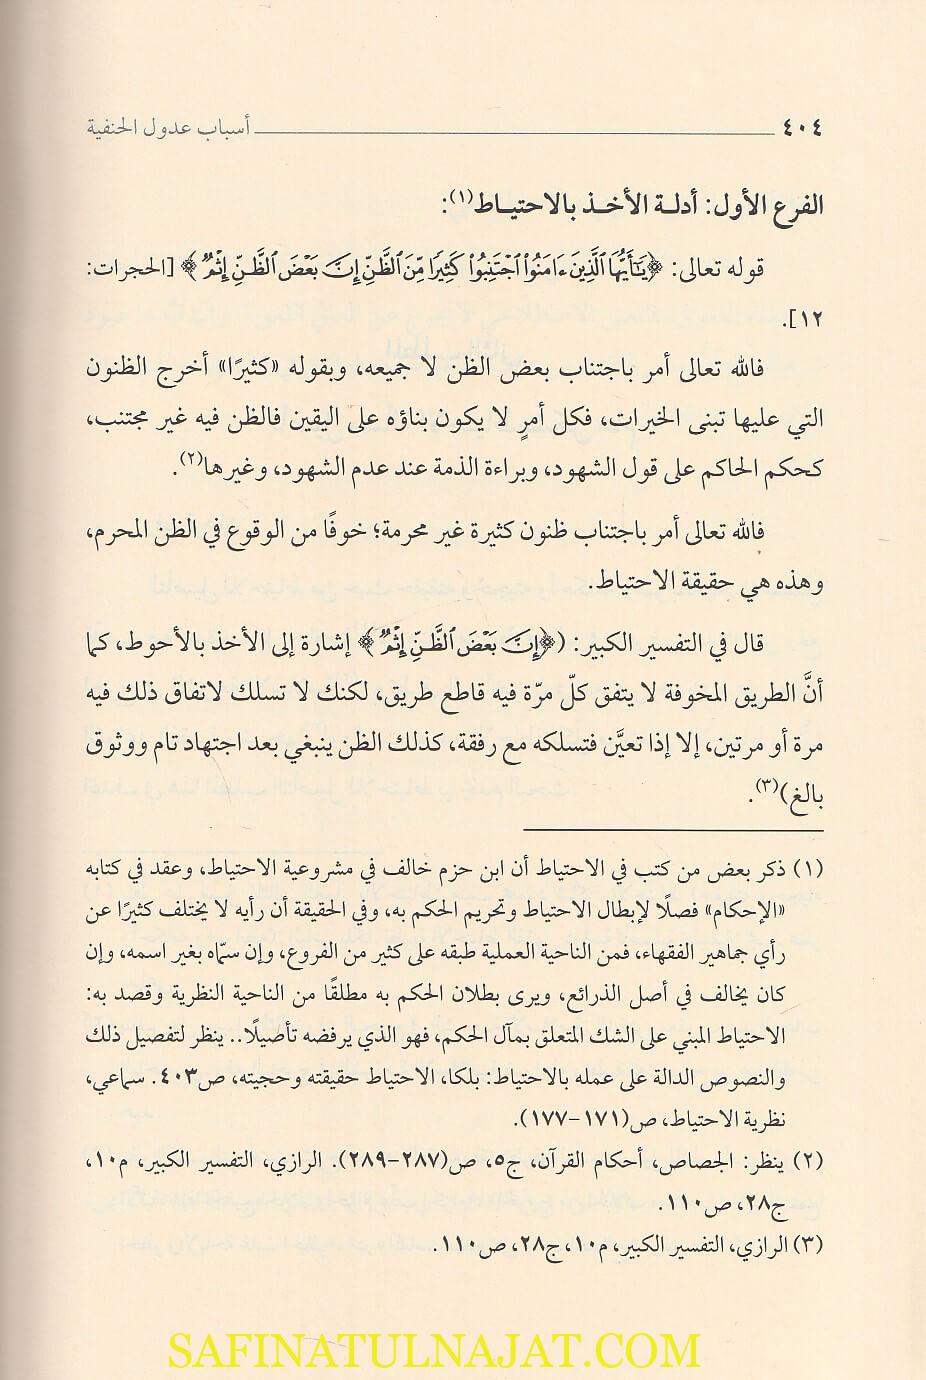 ٤٠٤ أسباب عدول الحنفية
الفرع الأول: أدلة الأخذ بالاحتياط(١):
قوله تعالى: ﴿يَٰٓأَيُّهَا ٱلَّذِينَ ءَامَنُوا۟ ٱجْتَنِبُوا۟ كَثِيرًا مِّنَ ٱلظَّنِّ إِنَّ بَعْضَ ٱلظَّنِّ إِثْمٌ﴾ [الحجرات:
١٢].
فالله تعالى أمر باجتناب بعض الظن لا جميعه، وبقوله «كثيرًا» أخرج الظنون
التي عليها تبنى الخيرات، فكل أمرٍ لا يكون بناؤه على اليقين فالظن فيه غير مجتنب،
كحكم الحاكم على قول الشهود، وبراءة الذمة عند عدم الشهود، وغيرها(٢).
فالله تعالى أمر باجتناب ظنون كثيرة غير محرمة؛ خوفًا من الوقوع في الظن المحرم،
وهذه هي حقيقة الاحتياط.
قال في التفسير الكبير: (﴿إِنَّ بَعْضَ ٱلظَّنِّ إِثْمٌ﴾ إشارة إلى الأخذ بالأحوط، كما
أنَّ الطريق المخوفة لا يتفق كلّ مرّة فيه قاطع طريق، لكنك لا تسلك لاتفاق ذلك فيه
مرة أو مرتين، إلا إذا تعيَّن فتسلكه مع رفقة، كذلك الظن ينبغي بعد اجتهاد تام ووثوق
بالغ)(٣).
(١) ذكر بعض من كتب في الاحتياط أن ابن حزم خالف في مشروعية الاحتياط، وعقد في كتابه
«الإحكام» فصلًا لإبطال الاحتياط وتحريم الحكم به، وفي الحقيقة أن رأيه لا يختلف كثيرًا عن
رأي جماهير الفقهاء، فمن الناحية العملية طبقه على كثير من الفروع، وإن سمّاه بغير اسمه، وإن
كان يخالف في أصل الذرائع، ويرى بطلان الحكم به مطلقًا من الناحية النظرية وقصد به:
الاحتياط المبني على الشك المتعلق بمآل الحكم، فهو الذي يرفضه تأصيلًا.. ينظر لتفصيل ذلك
والنصوص الدالة على عمله بالاحتياط: بلكا، الاحتياط حقيقته وحجيته، ص٤٠٣. سماعي،
نظرية الاحتياط، ص(١٧١-١٧٧).
(٢) ينظر: الجصاص، أحكام القرآن، ج٥، ص(٢٨٧-٢٨٩). الرازي، التفسير الكبير، م١٠،
ج٢٨، ص١١٠.
(٣) الرازي، التفسير الكبير، م١٠، ج٢٨، ص١١٠.
SAFINATULNAJAT.COM